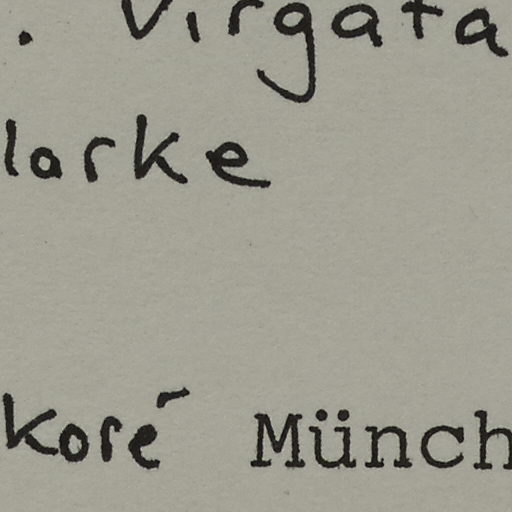 . virgata
larke
Koré Münch